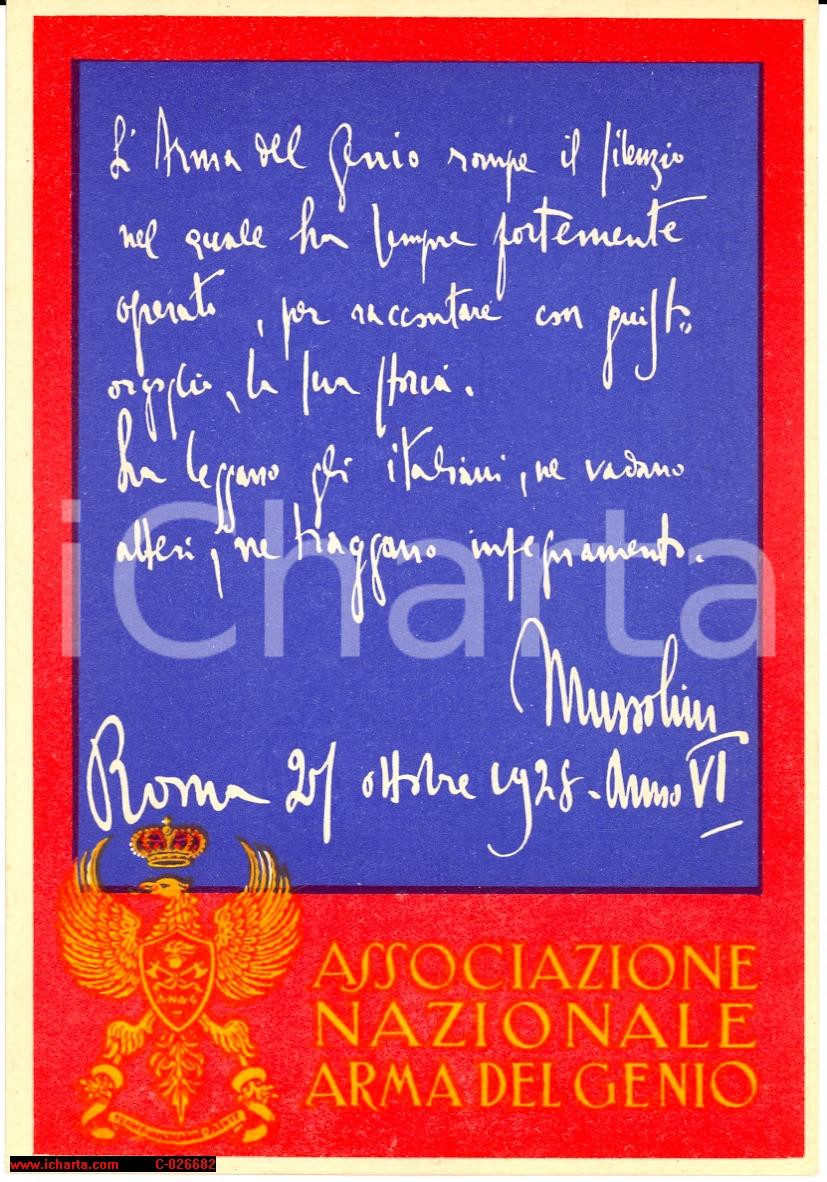 L'Arma del Genio rompe il silenzio
nel quale ha sempre fortemente
operato, per raccontare con giusto
orgoglio, la sua storia.
La leggano gli italiani, ne vadano
alteri, ne traggano insegnamento.
Mussolini
Roma 27 ottobre 1928 - Anno VI
iCharta
ASSOCIAZIONE
NAZIONALE
ARMA DEL GENIO
www.icharta.com C-026682